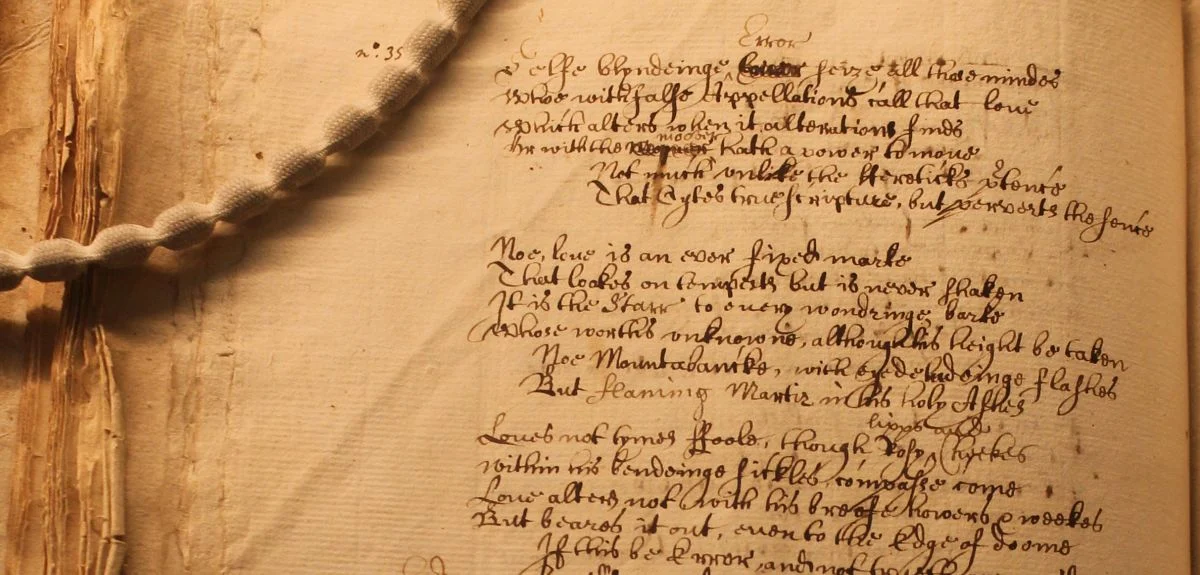 n.º 35
Error
Selfe blyndeinge seize all those mindes
Whoe with false Appellations call that love
Which alters when it alterations finds
mover
Or with the hath a power to move
Not much unlike the Hereticks ptence
That Cytes true scripture, but perverts the sence
Noe, love is an ever fixed marke
That lookes on tempests but is never shaken
It is the Starr to every wondringe barke
Whose worths unknowne, although his height be taken
Noe Mountabancke, with eye deludeinge flashes
But flameing Martir in his holy Ashes
lipps and
Loves not tymes ffoole, though Rosy Cheekes
within his bendeinge sickles compasse come
Love alters not with his breefe howers & weekes
But beares it out, even to the Edge of doome
If this be Error, and not